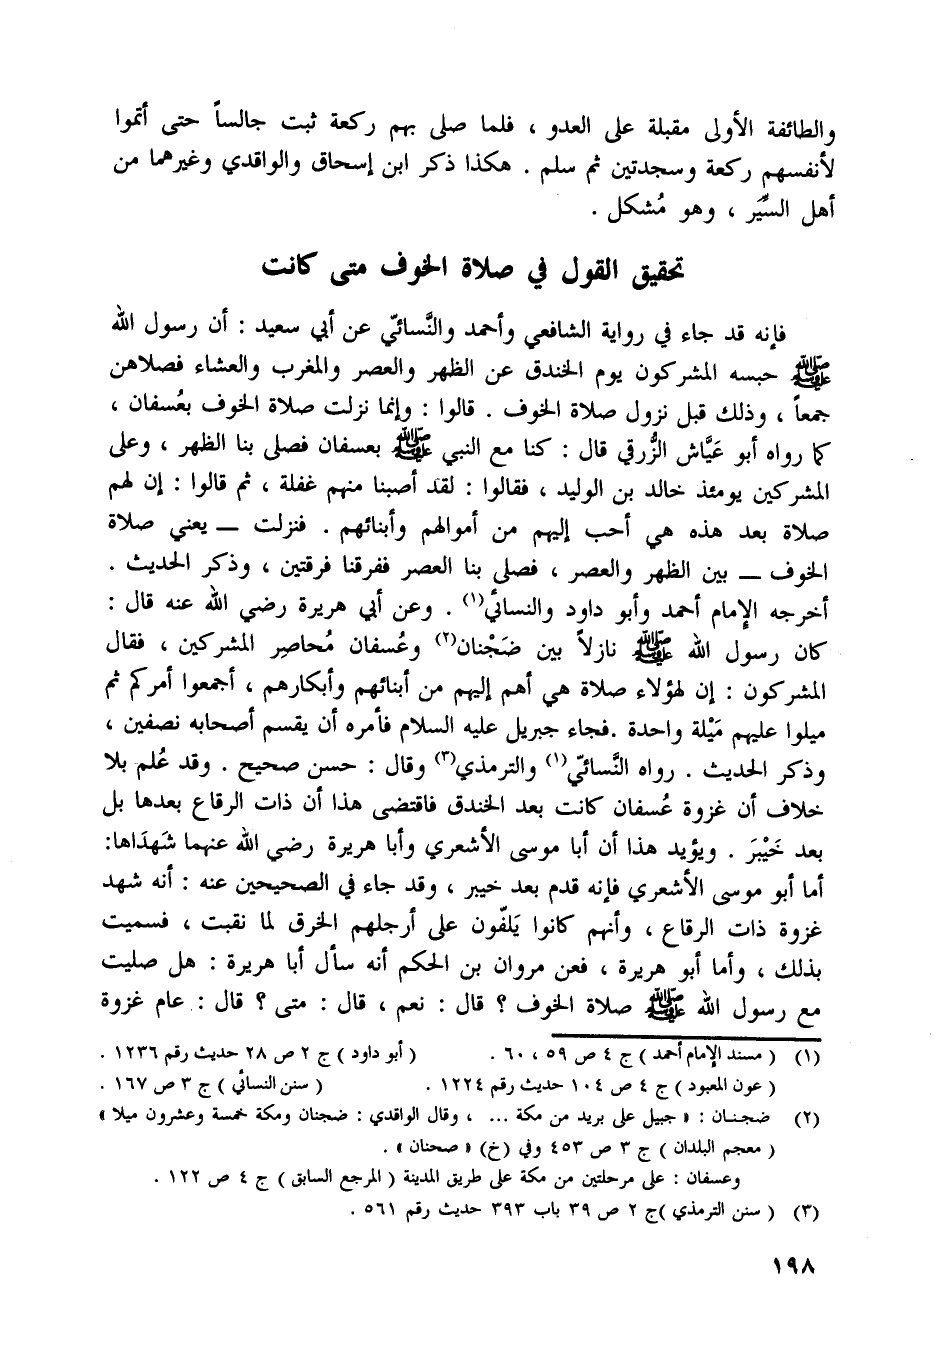 والطائفة الأولى مقبلة على العدو ، فلما صلى بهم ركعة ثبت جالساً حتى أتموا
لأنفسهم ركعة وسجدتين ثم سلم . هكذا ذكر ابن إسحاق والواقدي وغيرهما من
أهل السِّيَر ، وهو مُشكل .
تحقيق القول في صلاة الخوف متى كانت
فإنه قد جاء في رواية الشافعي وأحمد والنَّسائيّ عن أبي سعيد : أن رسول الله
ﷺ حبسه المشركون يوم الخندق عن الظهر والعصر والمغرب والعشاء فصلاهن
جمعاً ، وذلك قبل نزول صلاة الخوف . قالوا : وإنما نزلت صلاة الخوف بعُسفان ،
كما رواه أبو عَيَّاش الزُّرقي قال : كنا مع النبي ﷺ بعسفان فصلى بنا الظهر ، وعلى
المشركين يومئذ خالد بن الوليد ، فقالوا : لقد أصبنا منهم غفلة ، ثم قالوا : إن لهم
صلاة بعد هذه هي أحب إليهم من أموالهم وأبنائهم . فنزلت — يعني صلاة
الخوف — بين الظهر والعصر ، فصلى بنا العصر ففرقنا فرقتين ، وذكر الحديث .
أخرجه الإمام أحمد وأبو داود والنسائي(١) . وعن أبي هريرة رضي الله عنه قال :
كان رسول الله ﷺ نازلاً بين ضَجْنان(٢) وعُسفان مُحاصِر المشركين ، فقال
المشركون : إن لهؤلاء صلاة هي أهم إليهم من أبنائهم وأبكارهم ، أجمعوا أمركم ثم
ميلوا عليهم مَيْلة واحدة .فجاء جبريل عليه السلام فأمره أن يقسم أصحابه نصفين ،
وذكر الحديث . رواه النَّسائيّ(١) والترمذي(٣) وقال : حسن صحيح . وقد عُلم بلا
خلاف أن غزوة عُسفان كانت بعد الخندق فاقتضى هذا أن ذات الرقاع بعدها بل
بعد خَيْبَرَ . ويؤيد هذا أن أبا موسى الأشعري وأبا هريرة رضي الله عنهما شَهِدَاها:
أما أبو موسى الأشعري فإنه قدم بعد خيبر ، وقد جاء في الصحيحين عنه : أنه شهد
غزوة ذات الرقاع ، وأنهم كانوا يَلفّون على أرجلهم الخرق لما نقبت ، فسميت
بذلك ، وأما أبو هريرة ، فعن مروان بن الحكم أنه سأل أبا هريرة : هل صليت
مع رسول الله ﷺ صلاة الخوف ؟ قال : نعم ، قال : متى ؟ قال : عام غزوة
(١) ( مسند الإمام أحمد ) ج ٤ ص ٥٩ ، ٦٠ . ( أبو داود ) ج ٢ ص ٢٨ حديث رقم ١٢٣٦ .
( عون المعبود ) ج ٤ ص ١٠٤ حديث رقم ١٢٢٤ . ( سنن النسائي ) ج ٣ ص ١٦٧ .
(٢) ضجنان : « جبيل على بريد من مكة ... ، وقال الواقدي : ضجنان ومكة خمسة وعشرون ميلا »
( معجم البلدان ) ج ٣ ص ٤٥٣ وفي (خ) « صحنان » .
وعسفان : على مرحلتين من مكة على طريق المدينة ( المرجع السابق ) ج ٤ ص ١٢٢ .
(٣) ( سنن الترمذي )ج ٢ ص ٣٩ باب ٣٩٣ حديث رقم ٥٦١ .
١٩٨